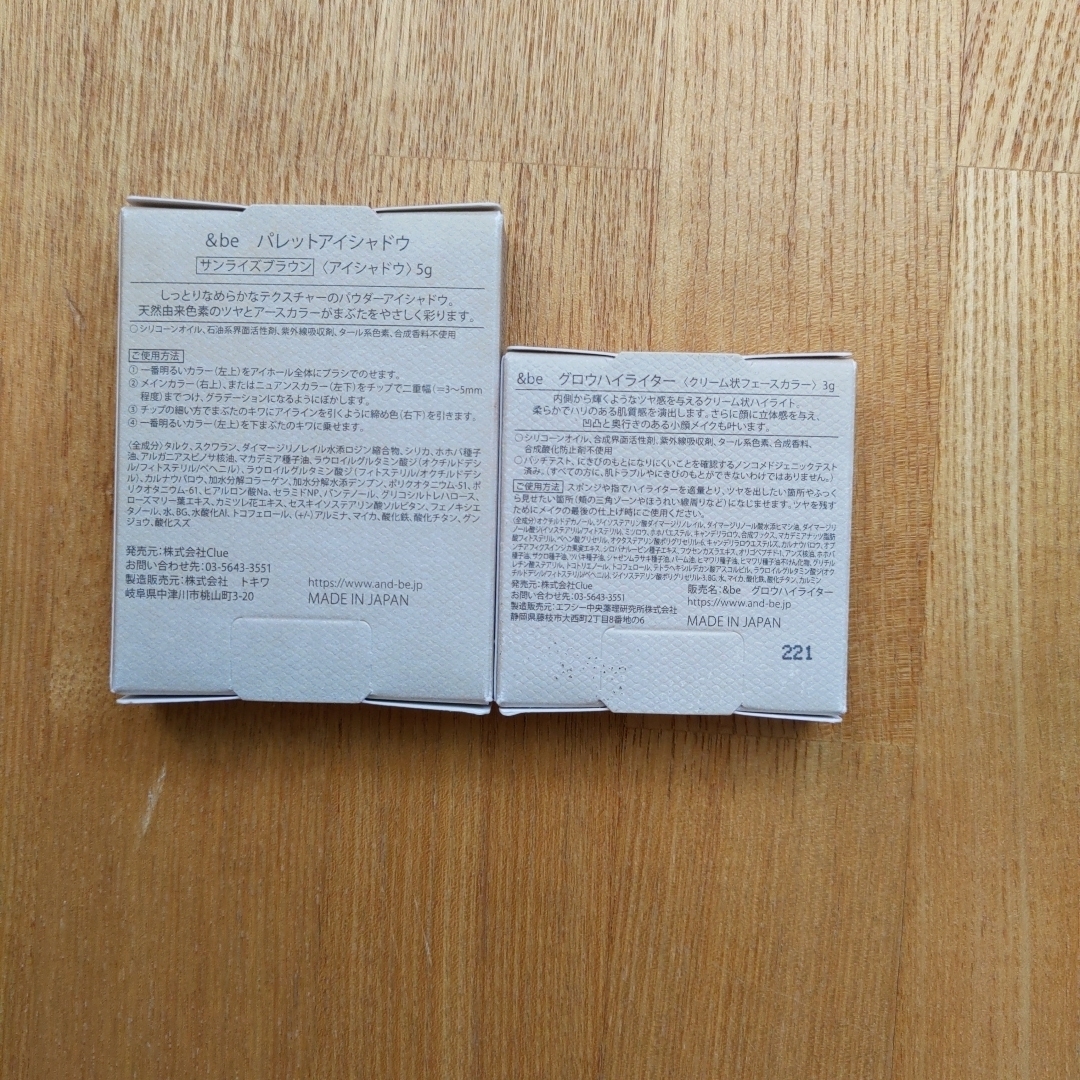 &be　パレットアイシャドウ
サンライズブラウン〈アイシャドウ〉5g
しっとりなめらかなテクスチャーのパウダーアイシャドウ。
天然由来色素のツヤとアースカラーがまぶたをやさしく彩ります。
○シリコーンオイル、石油系界面活性剤、紫外線吸収剤、タール系色素、合成香料不使用
ご使用方法
① 一番明るいカラー（左上）をアイホール全体にブラシでのせます。
② メインカラー（右上）、またはニュアンスカラー（左下）をチップで二重幅（＝3〜5mm
程度）までつけ、グラデーションになるようにぼかします。
③ チップの細い方でまぶたのキワにアイラインを引くように締め色（右下）を引きます。
④ 一番明るいカラー（左上）を下まぶたのキワに乗せます。
〈全成分〉タルク、スクワラン、ダイマージリノレイル水添ロジン縮合物、シリカ、ホホバ種子
油、アルガニアスピノサ核油、マカデミア種子油、ラウロイルグルタミン酸ジ（オクチルドデシ
ル/フィトステリル/ベヘニル）、ラウロイルグルタミン酸ジ（フィトステリル/オクチルドデシ
ル）、カルナウバロウ、加水分解コラーゲン、加水分解水添デンプン、ポリクオタニウム-51、ポ
リクオタニウム-61、ヒアルロン酸Na、セラミドNP、パンテノール、グリコシルトレハロース、
ローズマリー葉エキス、カミツレ花エキス、セスキイソステアリン酸ソルビタン、フェノキシエ
タノール、水、BG、水酸化Al、トコフェロール、(+/-)アルミナ、マイカ、酸化鉄、酸化チタン、グン
ジョウ、酸化スズ
発売元：株式会社Clue
お問い合わせ先：03-5643-3551
製造販売元：株式会社　トキワ
岐阜県中津川市桃山町3-20
https://www.and-be.jp
MADE IN JAPAN
&be　グロウハイライター〈クリーム状フェースカラー〉3g
内側から輝くようなツヤ感を与えるクリーム状ハイライト。
柔らかでハリのある肌質感を演出します。さらに顔に立体感を与え、
凹凸と奥行きのある小顔メイクも叶います。
○シリコーンオイル、合成界面活性剤、紫外線吸収剤、タール系色素、合成香料、
合成酸化防止剤不使用
○パッチテスト、にきびのもとになりにくいことを確認するノンコメドジェニックテスト
済み。（すべての方に、肌トラブルやにきびのもとができないわけではありません。）
ご使用方法 スポンジや指でハイライターを適量とり、ツヤを出したい箇所やふっく
ら見せたい箇所（頬の三角ゾーンやほうれい線周りなど）になじませます。ツヤを残す
ためにメイクの最後の仕上げ時にご使用ください。
発売元：株式会社Clue
お問い合わせ先：03-5643-3551
製造販売元：エフシー中央薬理研究所株式会社
静岡県藤枝市大西町2丁目8番地の6
販売名：&be　グロウハイライター
https://www.and-be.jp
MADE IN JAPAN
221